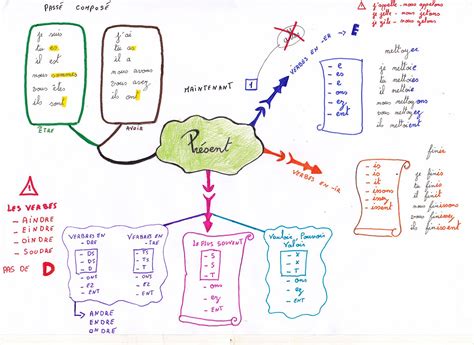 PASSÉ COMPOSÉ
je suis
tu es
il est
nous sommes
vous êtes
ils sont
ÊTRE
j'ai
tu as
il a
nous avons
vous avez
ils ont
AVOIR
MAINTENANT
1
Présent
VERBES EN -ER
E
- e
- es
- e
- ons
- ez
- ent
j'appelle - nous appelons
je jette - nous jetons
je gèle - nous gelons
nettoyer
je nettoie
tu nettoies
il nettoie
nous nettoyons
vous nettoyez
ils nettoient
VERBES EN -IR
- is
- is
- it
- issons
- issez
- issent
finir
je finis
tu finis
il finit
nous finissons
vous finissez
ils finissent
LES VERBES
- AINDRE
- EINDRE
- OINDRE
- SOUDRE
PAS DE D
VERBES EN - DRE
- DS
- DS
- D
- ONS
- EZ
- ENT
VERBES EN - TRE
- TS
- TS
- T
- ONS
- EZ
- ENT
ANDRE
ENDRE
ONDRE
LE PLUS SOUVENT
- S
- S
- T
- ons
- ez
- ent
Vouloir, Pouvoir
Valoir
- X
- X
- T
- ONS
- EZ
- ENT